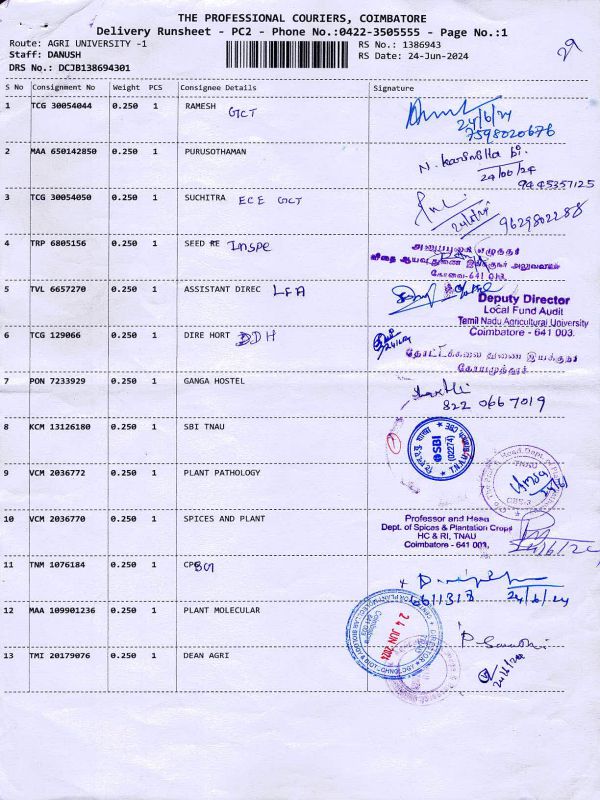 THE PROFESSIONAL COURIERS, COIMBATORE
Delivery Runsheet - PC2 - Phone No.:0422-3505555 - Page No.:1
Route: AGRI UNIVERSITY -1
RS No.: 1386943
29
Staff: DANUSH
RS Date: 24-Jun-2024
DRS No.: DCJB138694301
S No Consignment No Weight PCS Consignee Details Signature
1 TCG 30054044 0.250 1 RAMESH GCT
24/6/24
7598020676
2 MAA 650142850 0.250 1 PURUSOTHAMAN
24/06/24
9445357125
3 TCG 30054050 0.250 1 SUCHITRA ECE GCT
24/6/24 9629802288
4 TRP 6805156 0.250 1 SEED RE Inspe
விதை ஆய்வு துணை இயக்குநர் அலுவலகம்
கோவை-641 013.
5 TVL 6657270 0.250 1 ASSISTANT DIREC LFA
Deputy Director
Local Fund Audit
Tamil Nadu Agricultural University
Coimbatore - 641 003.
6 TCG 129066 0.250 1 DIRE HORT DDH
தோட்டக்கலை துணை இயக்குநர்
கோயமுத்தூர்
7 PON 7233929 0.250 1 GANGA HOSTEL
822 066 7019
8 KCM 13126180 0.250 1 SBI TNAU
SBI
(02274)
TNAU
9 VCM 2036772 0.250 1 PLANT PATHOLOGY
TNAU
CBE-3
24/6/
10 VCM 2036770 0.250 1 SPICES AND PLANT
Professor and Head
Dept. of Spices & Plantation Crops
HC & RI, TNAU
Coimbatore - 641 003.
24/6/24
11 TNM 1076184 0.250 1 CPBGI
6611318 24/6/24
12 MAA 109901236 0.250 1 PLANT MOLECULAR
DIRECTOR
CENTRE FOR PLANT MOLECULAR BIOLOGY & BIOTECHNOLOGY
TNAU
Coimbatore
641 003
24 JUN 2024
13 TMI 20179076 0.250 1 DEAN AGRI
24/6/24